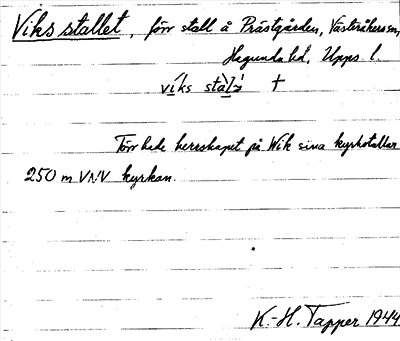 Viks stallet, förr stall å Prästgården, Västeråkers sn,
Hagunda hd, Upps l.
vi̱ks sta̱ḻ
†
Förr hade herrskapet på Wik sina kyrkstallar
250 m VNV kyrkan.
K.-H. Tapper 1944